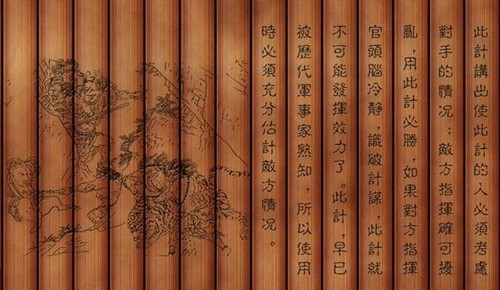 此計講出使此計的人必須考慮
對手的情况：敵方指揮確可擾
亂，用此計必勝，如果對方指揮
官頭腦冷靜，識破計謀，此計就
不可能發揮效力了。此計，早已
被歷代軍事家熟知，所以使用
時必須充分估計敵方情况。